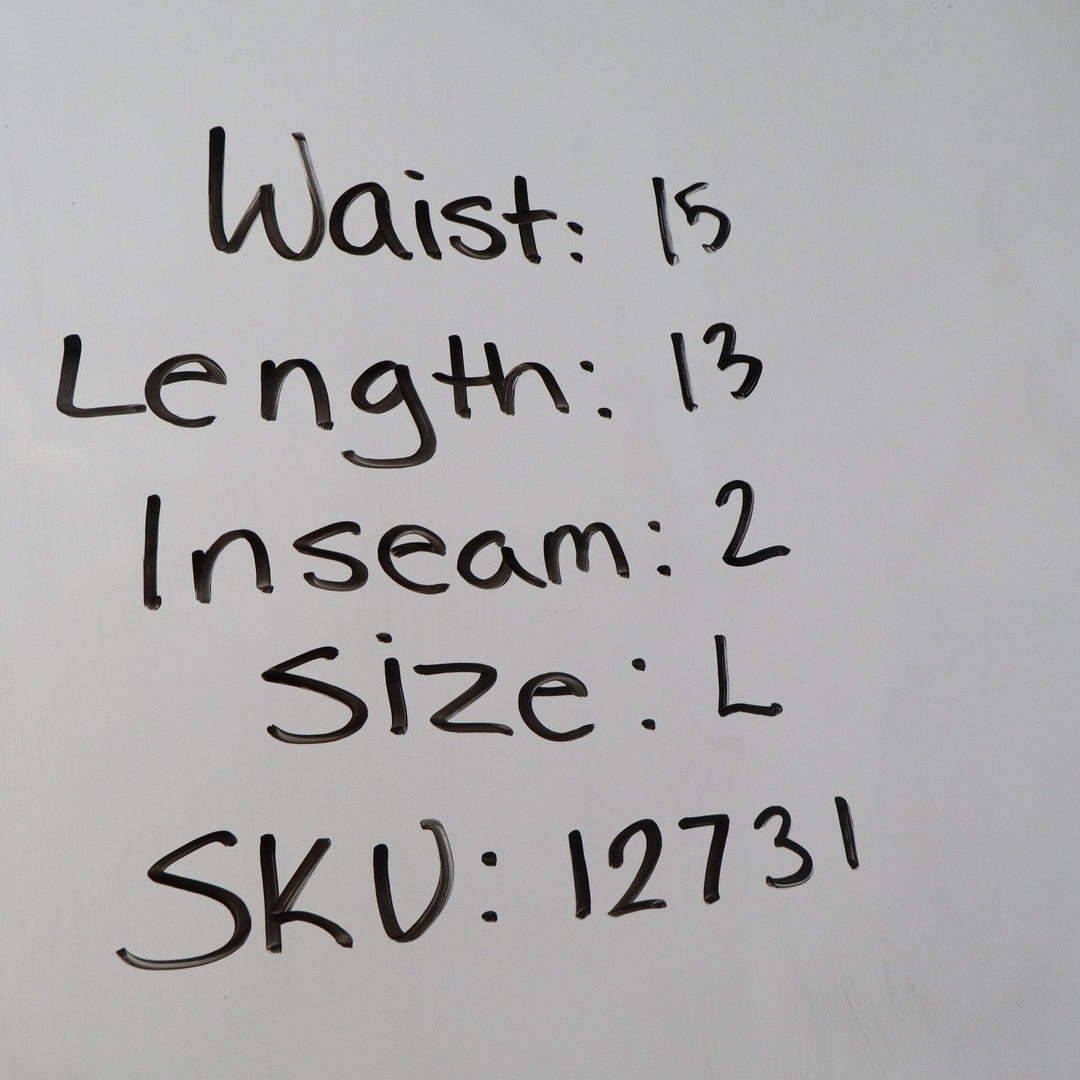 Waist: 15
Length: 13
Inseam: 2
Size: L
SKU: 12731